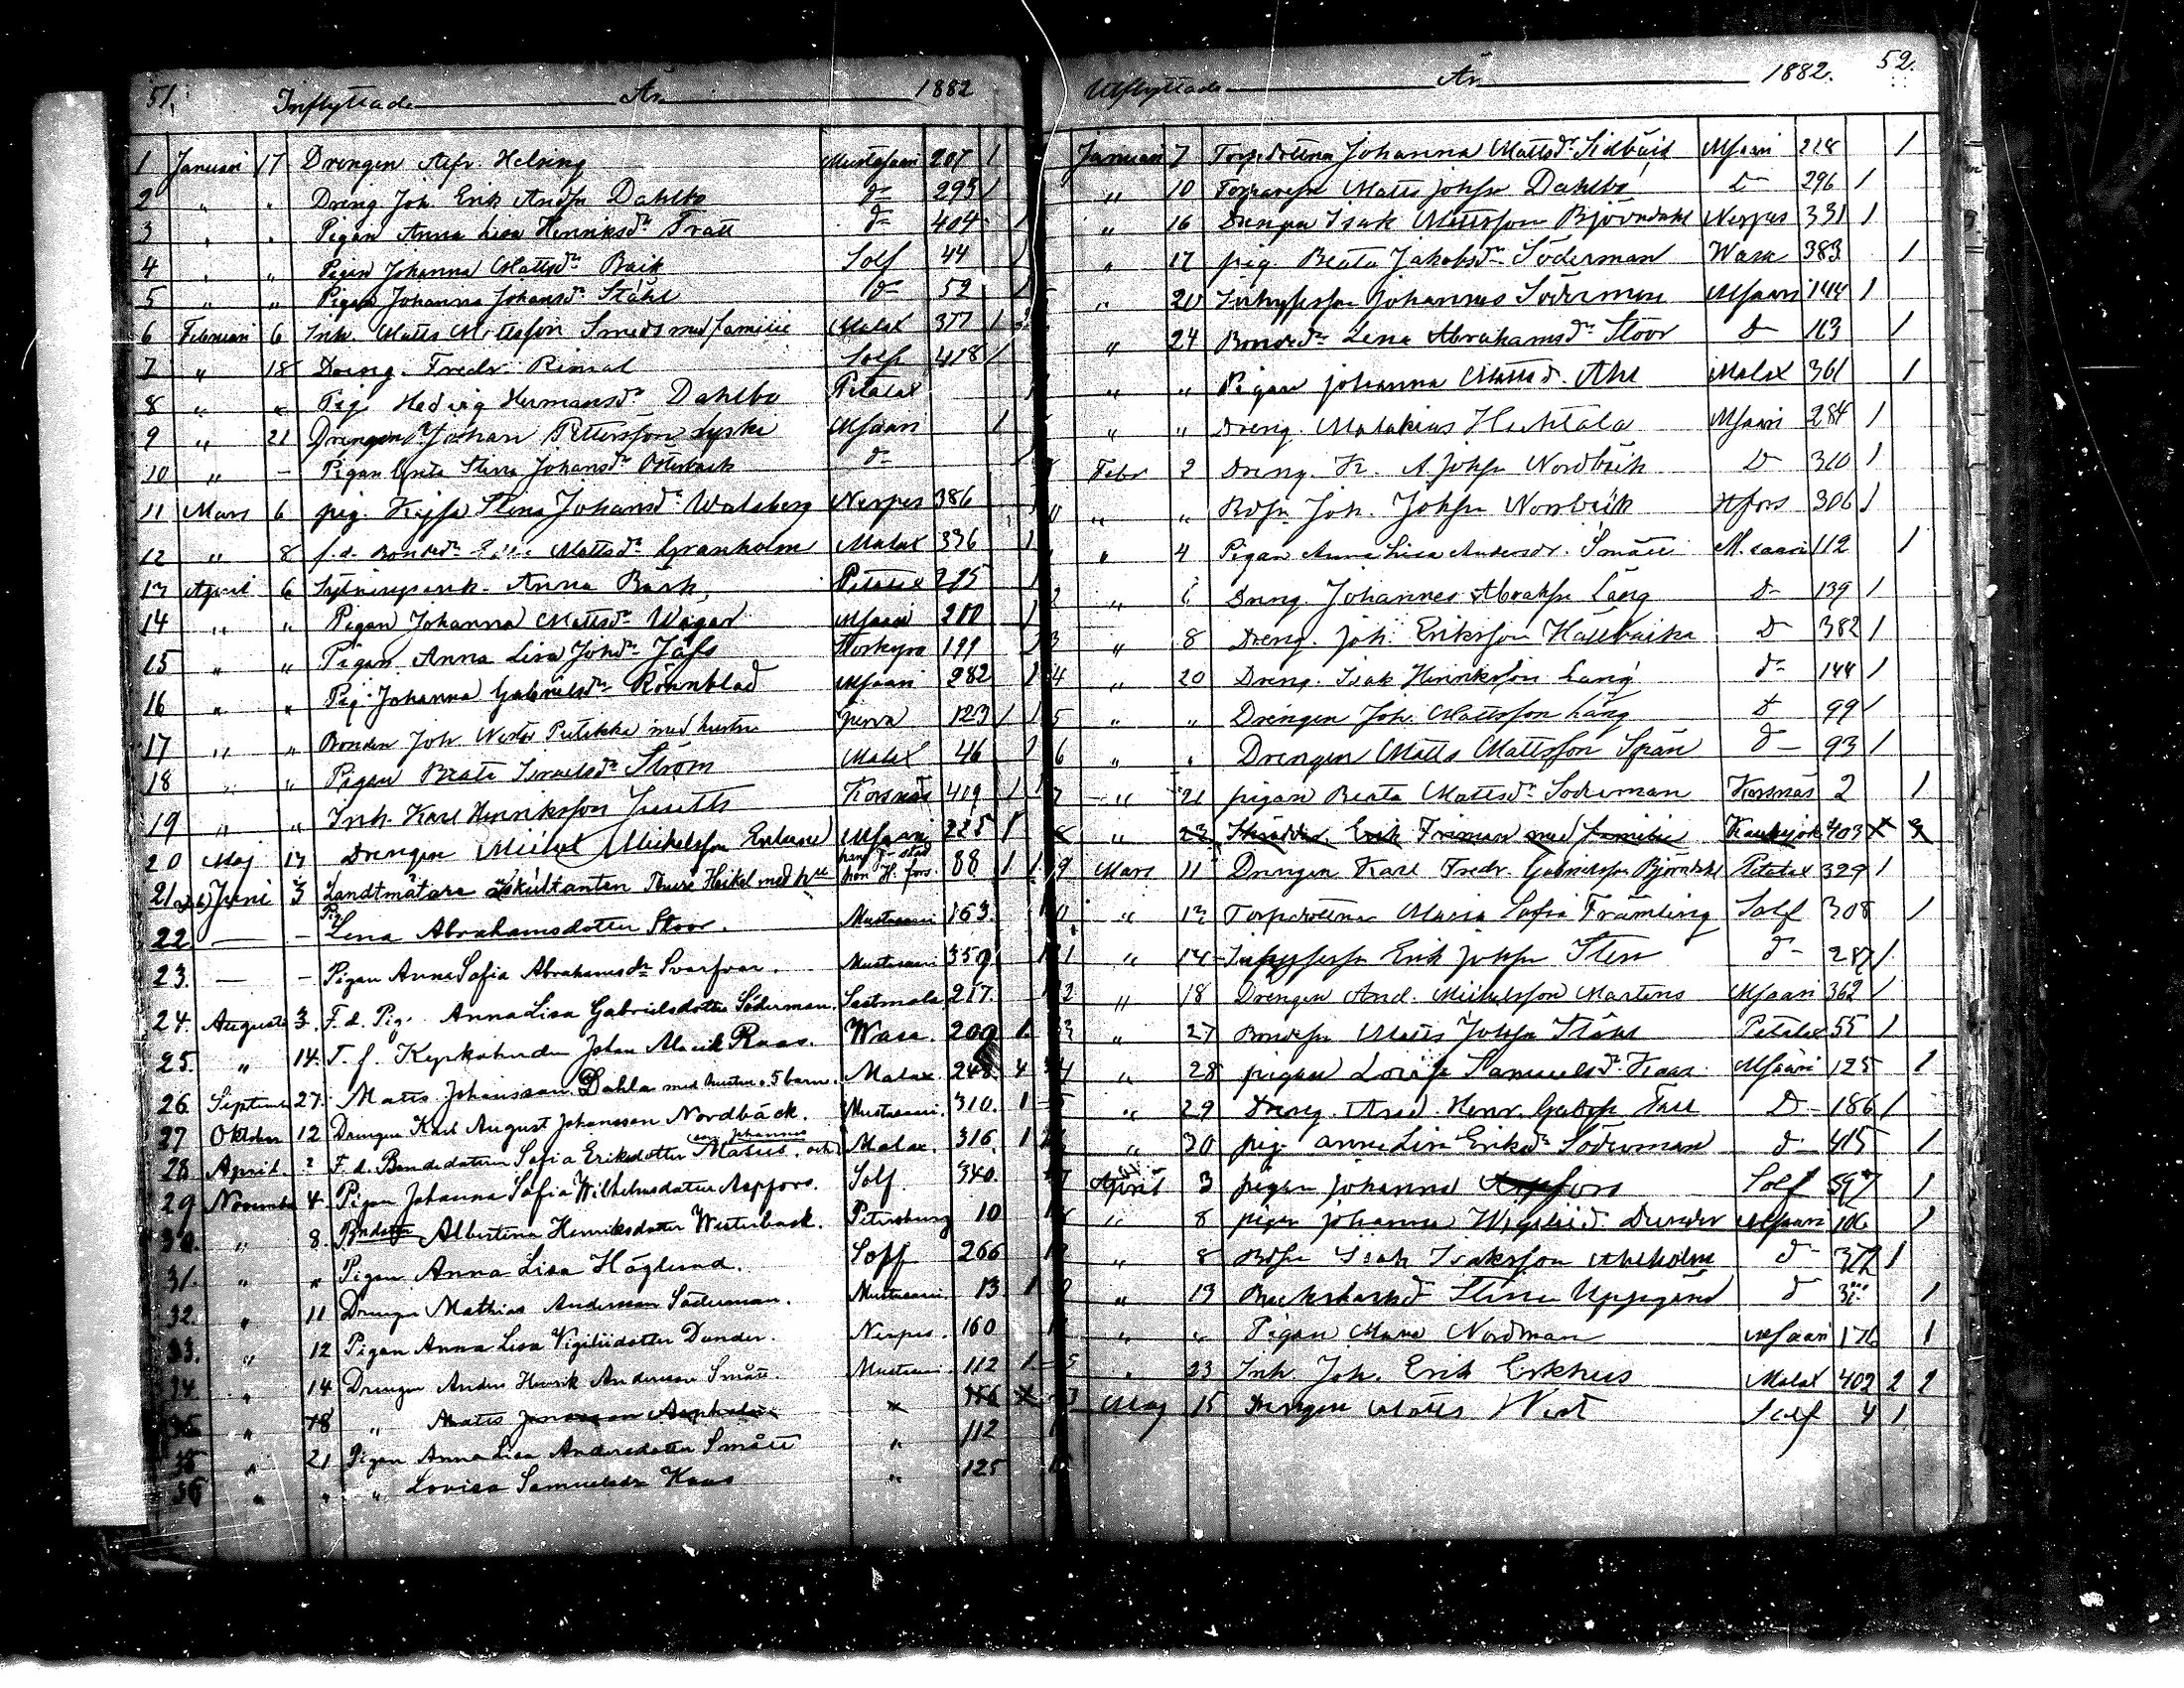 51. Inflyttade År 1882
1 Januari 17 Drengen Alfr. Helsing Mustasaari 207 1
2 " " Dreng. Joh. Erik Andsn Dahlbo d- 295 1
3 " " Pigan Anna Lisa Henriksdr Trätt d- 404 1
4 " " Pigan Johanna Mattsdr Bäck Solf 44
5 " " Pigan Johanna Johansdr Ståhl d- 52
6 Februari 6 Inh. Matts Mattsson Smeds med familie Malax 377 1
7 " 18 Dreng. Fredr. Rimal Solf 418 1
8 " " Pig. Hedvig Hermansdr Dahlbo Petalax
9 " 21 Drengen Johan Pettersson Lyski Msaari 1
10 " - Pigan Greta Stina Johansdr Österback d-
11 Mars 6 pig. Kajsa Stina Johansdr Walsberg Nerpes 386
12 " 8 f.d. Bondedr Mattsdr Granholm Malax 336 1
13 April 6 Anna Bäck Petalax 295 1
14 " " Pigan Johanna Mattsdr Wägar Msaari 200 1
15 " " Pigan Anna Lisa Johdr Jåfs Storkyro 199
16 " " Pig. Johanna Gabrielsdr Rönnblad Msaari 282 1
17 " " Bonden Joh med hustru 123 1 1
18 " " Pigan Beata Israelsdr Ström Malax 46 1
19 " " Inh. Karl Henriksson Korsnäs 409 1 1
20 Maj 17 Drengen Mickel Mickelsson Msaari 225 1
21 Juni 3 Landtmätare auskultanten Thure Heikel med hu hon H.fors 88 1 1
22 — - Pig Lena Abrahamsdotter Stoor. Mustasaari 163.
23. — - Pigan Anna Sofia Abrahamsdr Svarfvar. Mustasaari 359
24. Augusti 3. F. d. Pig. Anna Lisa Gabrielsdotter Söderman. Sastmola 217.
25. " 14. T. f. Kyrkoherden Johan Alarik Roos. Wasa. 209 1.
26 Septemb 27. Matts Johansson Dahla med hustru o. 5 barn. Malax 248. 4
27 Oktober 12 Drengen Karl August Johansson Nordbäck. Mustasaari. 310. 1
28 April. ? F. d. Bondedottern Sofia Eriksdotter Matsus, och son Johannes Malax. 316. 1
29 Novemb 4. Pigan Johanna Sofia Wilhelmsdotter Aspfors. Solf 340.
30. " 8. Bndedottr Albertina Henriksdotter Westerback. Petersburg 10
31. " " Pigan Anna Lisa Höglund. Solf 266
32. " 11 Drengen Mathias Andersson Söderman. Mustasaari 13 1
33. " 12 Pigan Anna Lisa Vigiliidotter Dunder. Nerpes. 160
34. " 14 Drengen Anders Henrik Andersson Smått. Mustasaari. 112 1
" 18 " Matts
35 " 21 Pigan Anna Lisa Andersdotter Smått " 112
36 " " " Lovisa Samuelsdr Kaas " 125
Utflyttade År 1882. 52.
Januari 7 Torpdottren Johanna Mattsdr Sidbäck Msaari 218 1
" 10 Torparesn Matts Johsn Dahlbo D- 296 1
" 16 Drengen Isak Mattsson Björndahl Nerpes 331 1
" 17 pig. Beata Jakobsdr Söderman Wasa 383 1
" 20 Inhyssesson Johannes Söderman Msaari 144 1
" 24 Bondedr Lena Abrahamsdr Stoor D- 163 1
" " Pigan Johanna Mattsd. Ahl Malax 361 1
" " Dreng. Malakias Huhtala Msaari 284 1
Febr 2 Dreng. K. A. Johsn Nordbäck D 310 1
" " Bdsn Joh. Johsn Norrbäck Hfors 306 1
" 4 Pigan Anna Lisa Andersdr. Smått M.saari 112 1
" 6 Dreng. Johannes Abrahsn Lång D- 139 1
" 8 Dreng. Joh. Eriksson Hällback D 382 1
" 20 Dreng. Isak Henriksson Lång d- 144 1
" " Drengen Joh. Mattsson Lång d 99 1
" " Drengen Matts Mattsson Span d- 93 1
" 21 pigan Beata Mattsdr Söderman Korsnäs 2 1
" 23 Skräddar. Erik Friman med familie 403
9 Mars 11 Drengen Karl Fredr. Gabrielsson Björndahl Petalax 329 1
" 13 Torpdottren Maria Sofia Främling Solf 308 1
" 14 Inhyssessn Erik Johsn Sten d- 287 1
" 18 Drengen And. Mickelsson Martens Msaari 362 1
" 27 Bondesn Matts Johsn Ståhl Petalax 55 1
" 28 pigan Lovisa Samuelsdr Kaas Msaari 125 1
" 29 Dreng. And. Henr. Gabrsn Tall D- 186 1
" 30 pig. Anna Lisa Eriksdr Söderman d- 415 1
April 3 pigan Johanna Aspfors Solf 1
" 8 pigan Johanna Dunder Msaari 106 1
" 8 Bdsn Isak Isaksson d- 1
" 13 Stina Uppgård d 1
" " Pigan Maria Nordman Msaari 176 1
" 23 Inh Joh. Erik Erkhus Malax 402 2 2
Maj 15 Drengen Matts West Solf 4 1